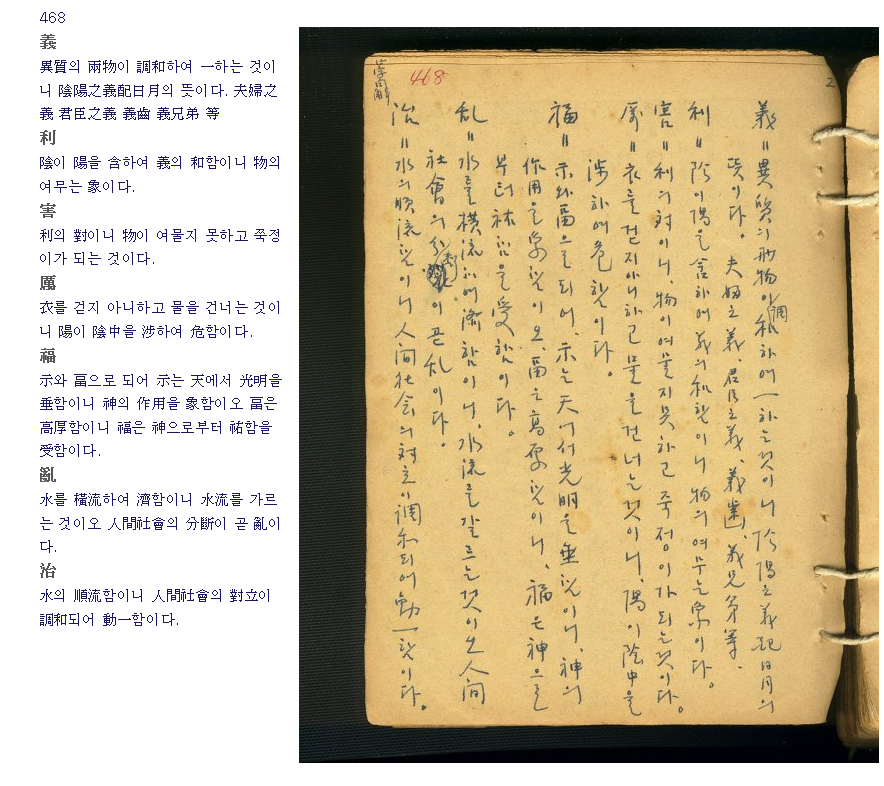 468
義
異質의 兩物이 調和하여 一하는 것이
니 陰陽之義配日月의 뜻이다. 夫婦之
義 君臣之義 義齒 義兄弟 等
利
陰이 陽을 含하여 義의 和함이니 物의
여무는 象이다.
害
利의 對이니 物이 여물지 못하고 쭉정
이가 되는 것이다.
厲
衣를 걷지 아니하고 물을 건너는 것이
니 陽이 陰中을 涉하여 危함이다.
福
示와 畐으로 되어 示는 天에서 光明을
垂함이니 神의 作用을 象함이오 畐은
高厚함이니 福은 神으로부터 祐함을
受함이다.
亂
水를 橫流하여 濟함이니 水流를 가르
는 것이오 人間社會의 分斷이 곧 亂이
다.
治
水의 順流함이니 人間社會의 對立이
調和되어 動一함이다.
468
2
義〓異質의 兩物이 調和하여 一하는것이니 陰陽之義配日月의
뜻이다。夫婦之義、君臣之義、義齒、義兄弟等、
利〓陰이陽을含하여 義의和함이니 物의여무는象이다。
害〓利의対이니、物이여물지못하고 죽정이가되는것이다。
厲〓衣를걷지아니하고 물을건너는것이니、陽이陰中을
涉하여危함이다。
福〓示와畐으로되어、示는天에서光明을垂함이니、神의
作用을象함이오、畐은高厚함이니、福은神으로
부터祐함을受함이다。
乱〓水를橫流하여濟함이니、水流를갈르는것이오人間
社會의分斷이곧乱이다。
治〓水의順流함이니人間社会의対立이調和되어動一함이다。